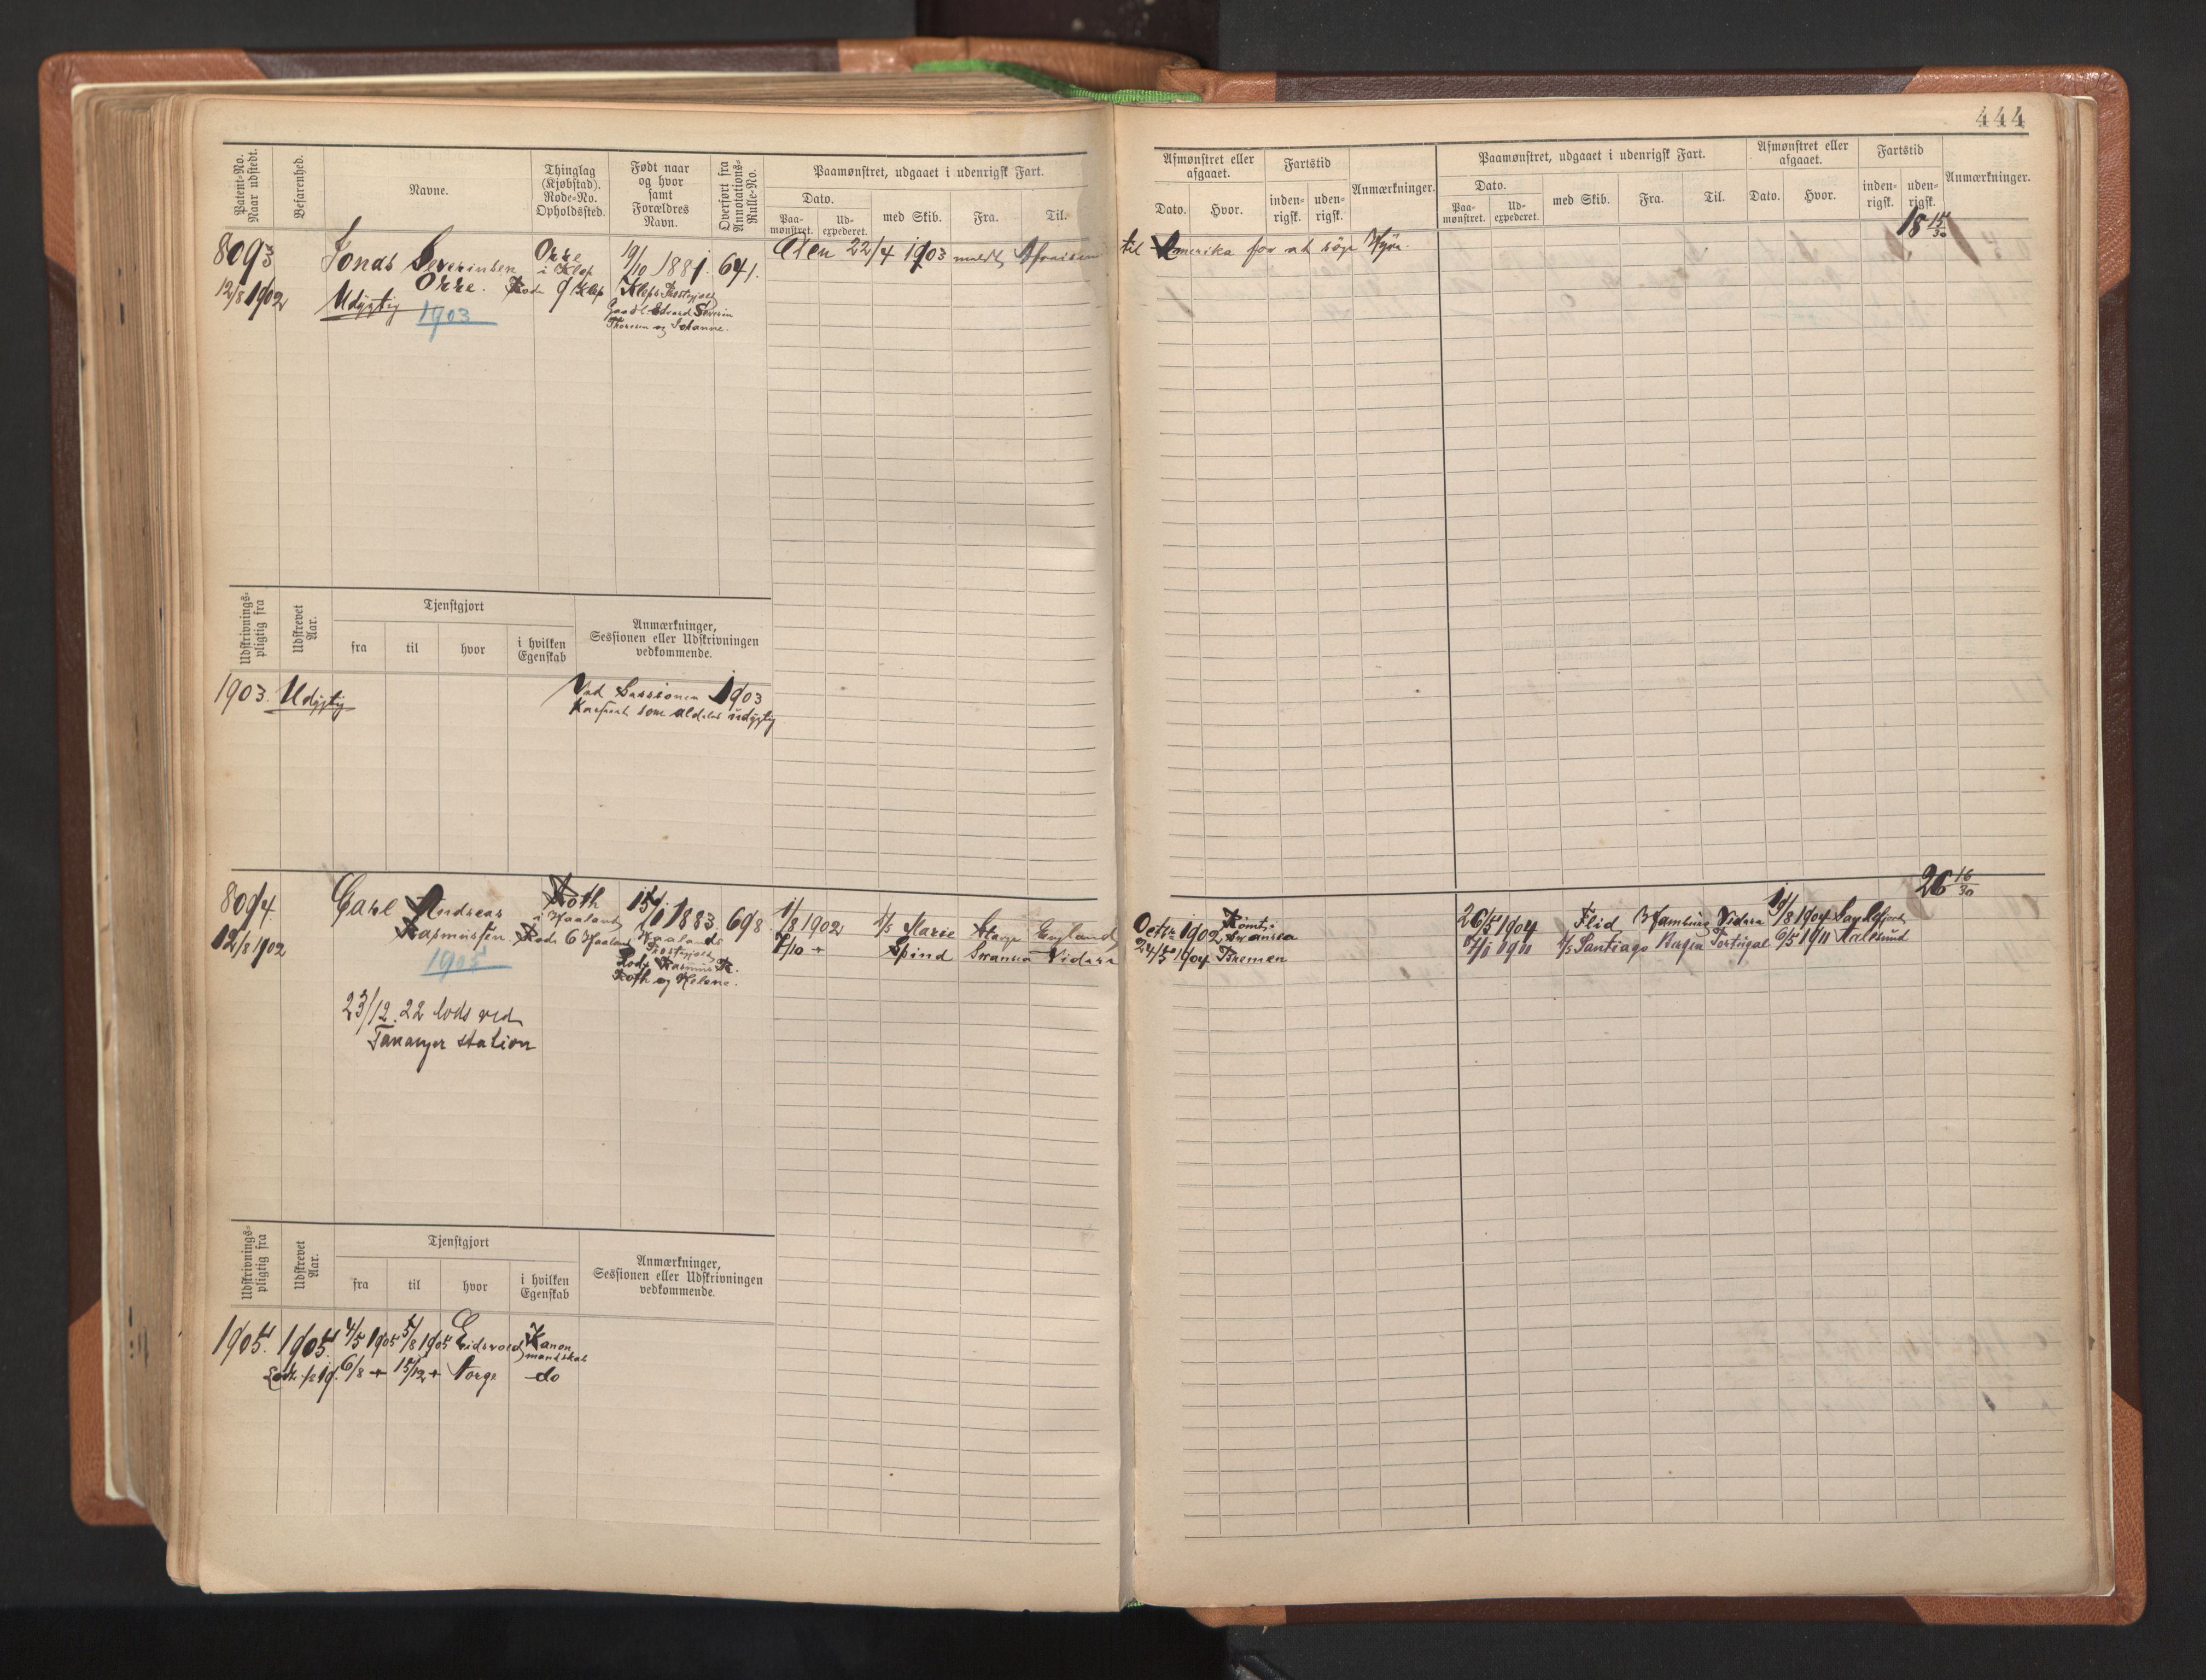 444
Patent-No.
Naar udstedt.
Befarenhed.
Navne.
Thinglag
(Kjøbstad).
Rode-No.
Opholdssted.
Født naar
og hvor
samt
Forældres
Navn.
Overført fra
Annotations-
Rulle-No.
Paamønstret, udgaaet i udenrigsk Fart.
Dato.
Paa-
mønstret.
Ud-
expederet.
med Skib.
Fra.
Til.
Afmønstret eller
afgaaet.
Dato.
Hvor.
Fartstid
inden-
rigsk.
uden-
rigsk.
Anmærkninger.
Paamønstret, udgaaet i udenrigsk Fart.
Dato.
Paa-
mønstret.
Ud-
expederet.
med Skib.
Fra.
Til.
Afmønstret eller
afgaaet.
Dato.
Hvor.
Fartstid
inden-
rigsk.
uden-
rigsk.
Anmærkninger.
18 15/30
8093
12/8 1902
Jonas Severinsen
Orre.
Udygtig
1903
Orre
i Klep
Rode 9 Klep
19/10 1881.
Kleps Præstegjeld
Gaardbr. Edvard Severin
Thoresen og Johanne.
641.
Den 22/4 1903 meldt Afreisen
til Amerika for at söge Hyre.
Udskrivnings-
pligtig fra
Udskrevet
Aar.
Tjenstgjort
fra
til
hvor
i hvilken
Egenskab
Anmærkninger,
Sessionen eller Udskrivningen
vedkommende.
1903. Udygtig
Ved Sessionen 1903
Kasseret som aldeles udygtig
26 16/30
8094.
12/8 1902
Carl Andreas
Rasmussen
1905
23/12. 22 lods ved
Tananger station
Roth
i Haaland
Rode 6 Haaland
15/1 1883.
Haalands
Præstegjeld
Lods Rasmus R.
Roth og Helene.
698.
1/8 1902 s/s Marie England
7/10 Spind Swansea Vidare
Octbr 1902 Römt i
Swansea
24/5 1904 Bremen
26/5 1904 Flid Hamburg Vidare 19/8 1904
7/1 1911 s/s Santiago Bergen Portugal 6/5 1911 Aalesund
Udskrivnings-
pligtig fra
Udskrevet
Aar.
Tjenstgjort
fra
til
hvor
i hvilken
Egenskab
Anmærkninger,
Sessionen eller Udskrivningen
vedkommende.
1905. 1905. 4/5 1905 5/8 1905 Eidsvold Kanon
mandskab
6/8 15/12 Norge do